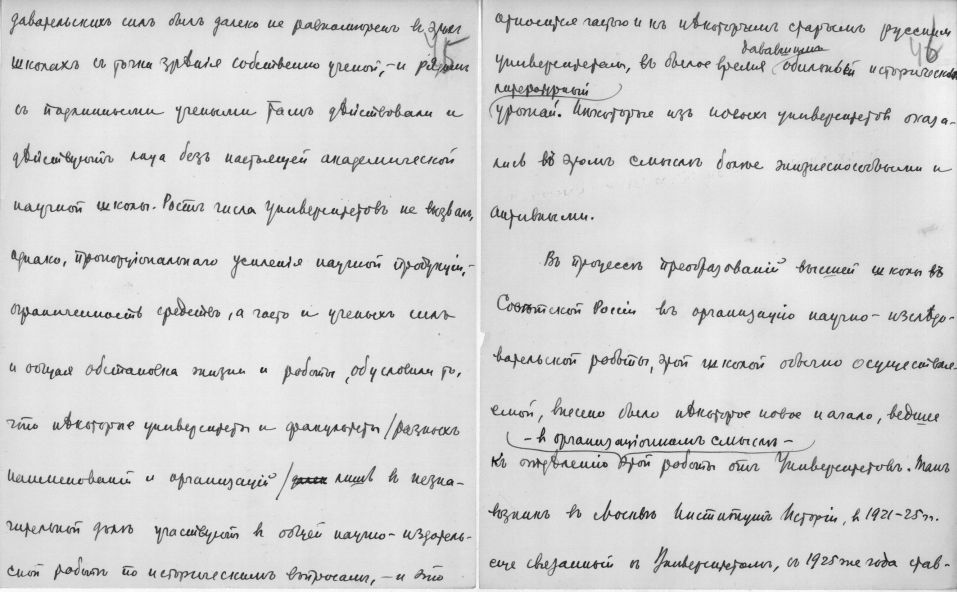 45
давательскихъ силъ былъ далеко не равномѣренъ в этих
школахъ съ точки зрѣнія собственно ученой, – и рядомъ
съ подлинными учеными тамъ дѣйствовали и
дѣйствуютъ лица безъ настоящей академической
научной школы. Ростъ числа Университетовъ не вызвалъ,
однако, пропорціональнаго усиленія научной продукціи, –
ограниченность средствъ, а часто и ученыхъ силъ
и общая обстановка жизни и работы, обусловили то,
что нѣкоторые университеты и факультеты /разныхъ
наименованій и организацій/ лишь в незна-
чительной долѣ участвуютъ в общей научно-издатель-
ской работѣ по историческимъ вопросамъ, – и это
46
относится частью и къ нѣкоторымъ старымъ русскимъ
дававшимъ
университетамъ, въ былое время обильный историческій
литературный
урожай. Нѣкоторые изъ новыхъ университетовъ оказа-
лись въ этомъ смыслѣ болѣе жизнеспособными и
активными.
Въ процессѣ преобразованій высшей школы въ
Совѣтской Россіи въ организацію научно-изслѣдо-
вательской работы, этой школой обычно осуществля-
емой, внесено было нѣкоторое новое начало, ведшее
– в организаціонномъ смыслѣ –
къ отдѣленію этой работы отъ Университетовъ. Такъ
возникъ въ Москвѣ Институтъ Исторіи, в 1921-25 гг.
еще связанный съ Университетомъ, съ 1925 же года став-